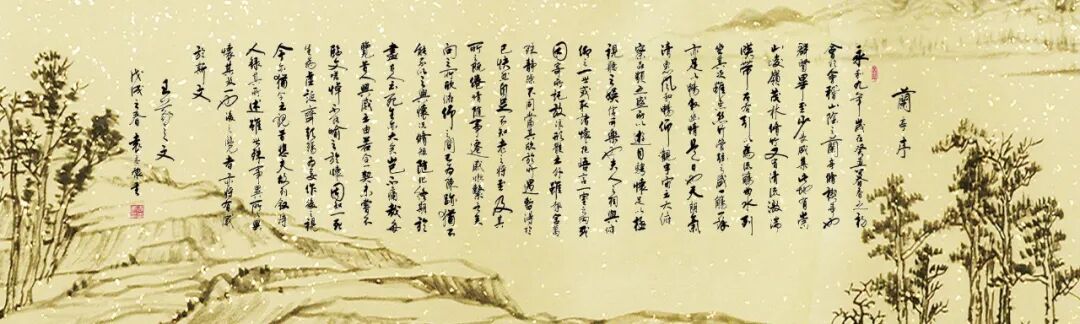 蘭亭序
永和九年歲在癸丑暮春之初
會於會稽山陰之蘭亭修禊事也
群賢畢至少長咸集此地有崇
山峻領茂林修竹又有清流激湍
暎帶左右引以為流觴曲水列
坐其次雖無絲竹管弦之盛一觴一詠
亦足以暢敘幽情是日也天朗氣
清惠風和暢仰觀宇宙之大俯
察品類之盛所以遊目騁懷足以極
視聽之娛信可樂也夫人之相與俯
仰一世或取諸懷抱悟言一室之內或
因寄所託放浪形骸之外雖趣舍萬
殊靜躁不同當其欣於所遇暫得於
己快然自足不知老之將至及其
所之既倦情隨事遷感慨係之矣
向之所欣俛仰之間已為陳跡猶不
能不以之興懷況修短隨化終期於
盡古人云死生亦大矣豈不痛哉每
覽昔人興感之由若合一契未嘗不
臨文嗟悼不能喻之於懷固知一死
生為虛誕齊彭殤為妄作後之視
今亦猶今之視昔悲夫故列敘時
人錄其所述雖世殊事異所以興
懷其致一也後之覽者亦將有感
於斯文
王羲之文
戊戌之春袁書